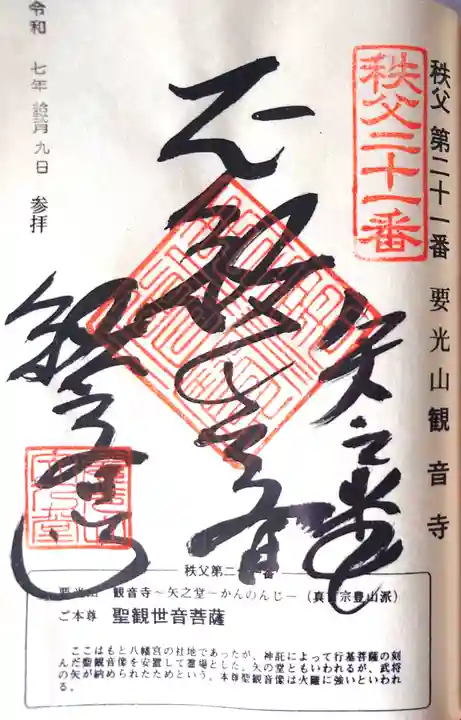 秩父 第二十一番 要光山観音寺
秩父二十一番
矢之堂
正観世音
観音寺
令和 七年 九日 参拝
秩父第二十一番
要光山 観音寺～矢之堂－かんのんじ－（真言宗豊山派）
ご本尊 聖観世音菩薩
ここはもと八幡宮の社地であったが、神託によって行基菩薩の刻
んだ聖観音像を安置して霊場とした。矢の堂ともいわれるが、武将
の矢が納められたためという。本尊聖観音像は火難に強いといわれ
る。